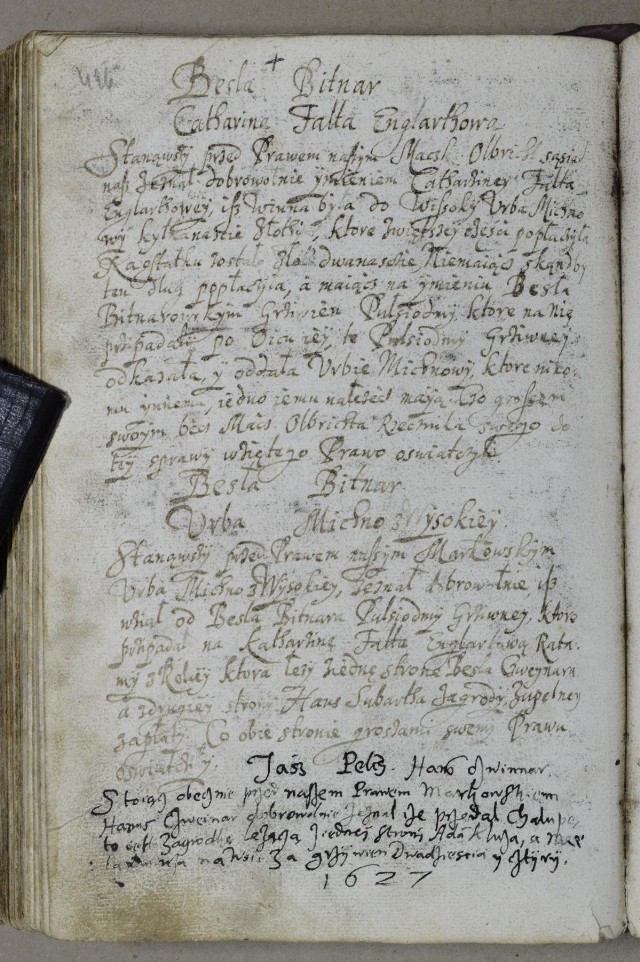 416
Besla + Bitnar
Catharina Falta Englarthowa
Stanąwszy przed Prawem naszym Macsk Olbricht sąsiad
nasz Zeznał dobrowolnie ymieniem Catharziney Falta
Englarthowey, isz winna była do Wissoky Urba Michno
wy kylkanascie złothi, ktore zwiętszey częsci popłaczyła
Na ostatku zostało złoth dwanascie, Niemaiącz skąndby
ten dług popłacyła, a maiącz na ymieniu Besla
Bitnarowskym Grziwien Pulsiodmy, ktore na nię
przipadali po Oicu iey, te Pulsiodmy Grziwney
odkazała, y oddała Urbie Michnowy, ktore niko
mu ynnemu, iedno iemu nalezec maią. Co groszem
swoym bes Macs Olbrichta Rzecznika swego do
tey sprawy wziętego Prawo oswiatczył.
Besla Bitnar
Urba Michno z Wysokiey
Stanąwszy przed Prawem naszym Markowskym
Urba Michno z Wysokiey, Zeznał dobrowolnie, isz
wział od Besla Bitnara Pulsiodmy Grziwney, ktore
przipadali na Katharzinę Falta Englartową Rata-
my z Roley ktora lezy z iednę stronę Besla Gweynara
a z drugiey strony Hans Subartha Zagrody, Zupelney
zapłaty. Co obie stronie groszami swemy Prawu
oswiatczyły.
Jasz Pelcz. Hans Gwinnar
Stoiąc obecznie przed naszem Prawem Markowskiem
Hanus Gweinar dobrowolnie zeznał ze przedał Chalupę,
to iest Zagrodkę lezącą z iedney strony Adą Kluza, a
na Wsi Za grzywien Dwadziescia y cztyry.
1627